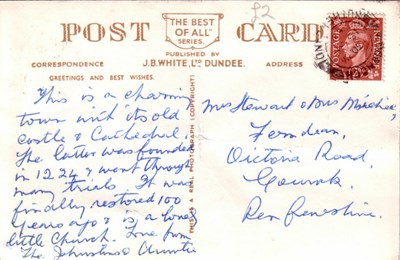 £2
POST CARD
THE BEST
OF ALL
SERIES.
PUBLISHED BY
J.B. WHITE, LTD DUNDEE.
CORRESPONDENCE
ADDRESS
GREETINGS AND BEST WISHES.
THIS IS A REAL PHOTOGRAPH (COPYRIGHT)
This is a charming
town with its old
castle & Cathedral.
The latter was founded
in 1224 & went through
many trials. It was
finally restored 100
years ago & is a lovely
little Church. Love from
The Johnstone Auntie
Mrs Stewart & Mrs
Ferndean,
Victoria Road,
Gourock,
Renfrewshire.
POSTAGE
REVENUE